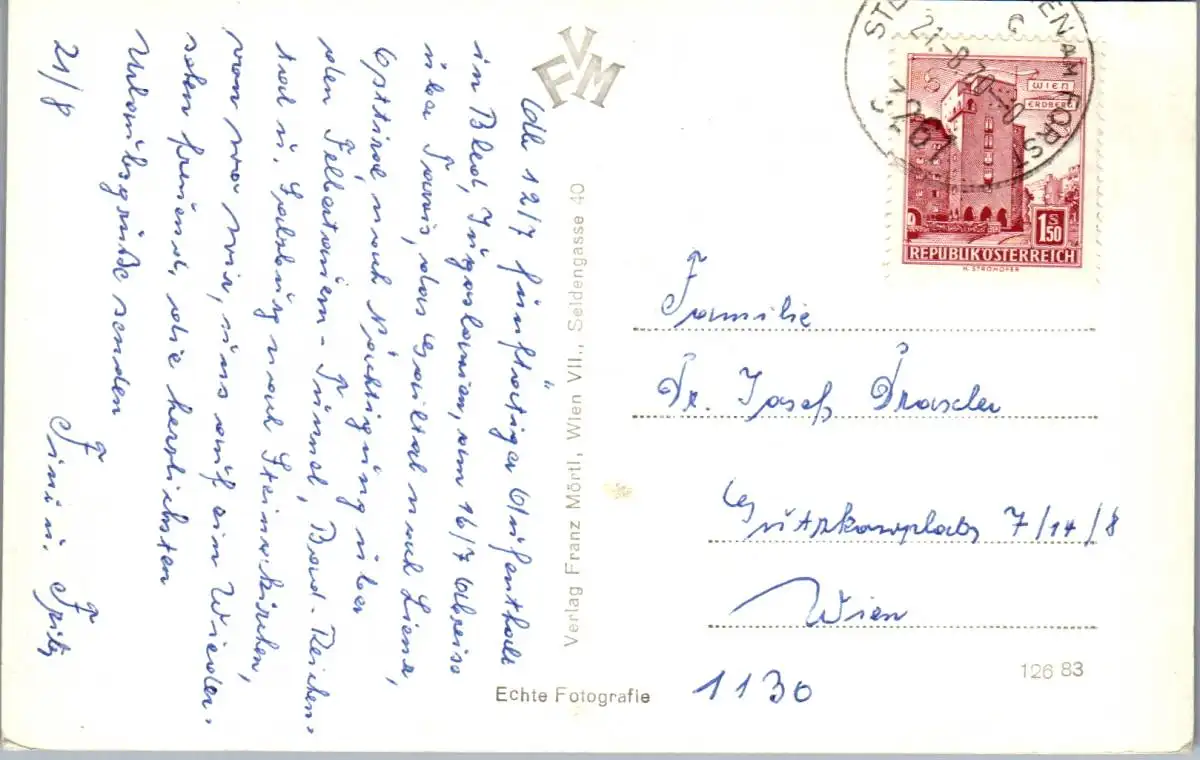 Ab 12/7 fünftägiger Aufenthalt
in Bled, Jugoslavien, am 16/7 Abreise
über Tarvis, das Gailtal nach Lienz,
Osttirol nach Nächtigung über
den Felbertauern-Tunnel, Bad-Reichen-
hal u. Salzburg nach Steinakirchen,
von wo wir, uns auf ein Wieder-
sehen freuend, die herzlichsten
Urlaubsgrüße senden
21/8
Fini u. Fritz
FVM
Verlag Franz Mörtl, Wien VII., Seidengasse 40
Echte Fotografie
AM FORST
21.-8.70
3261
WIEN
ERDBERG
1 S 50
REPUBLIK ÖSTERREICH
H. STROHOFER
Familie
Dr. Josef Drascler
Gutzkowplatz 7/14/8
Wien
1130
126 83